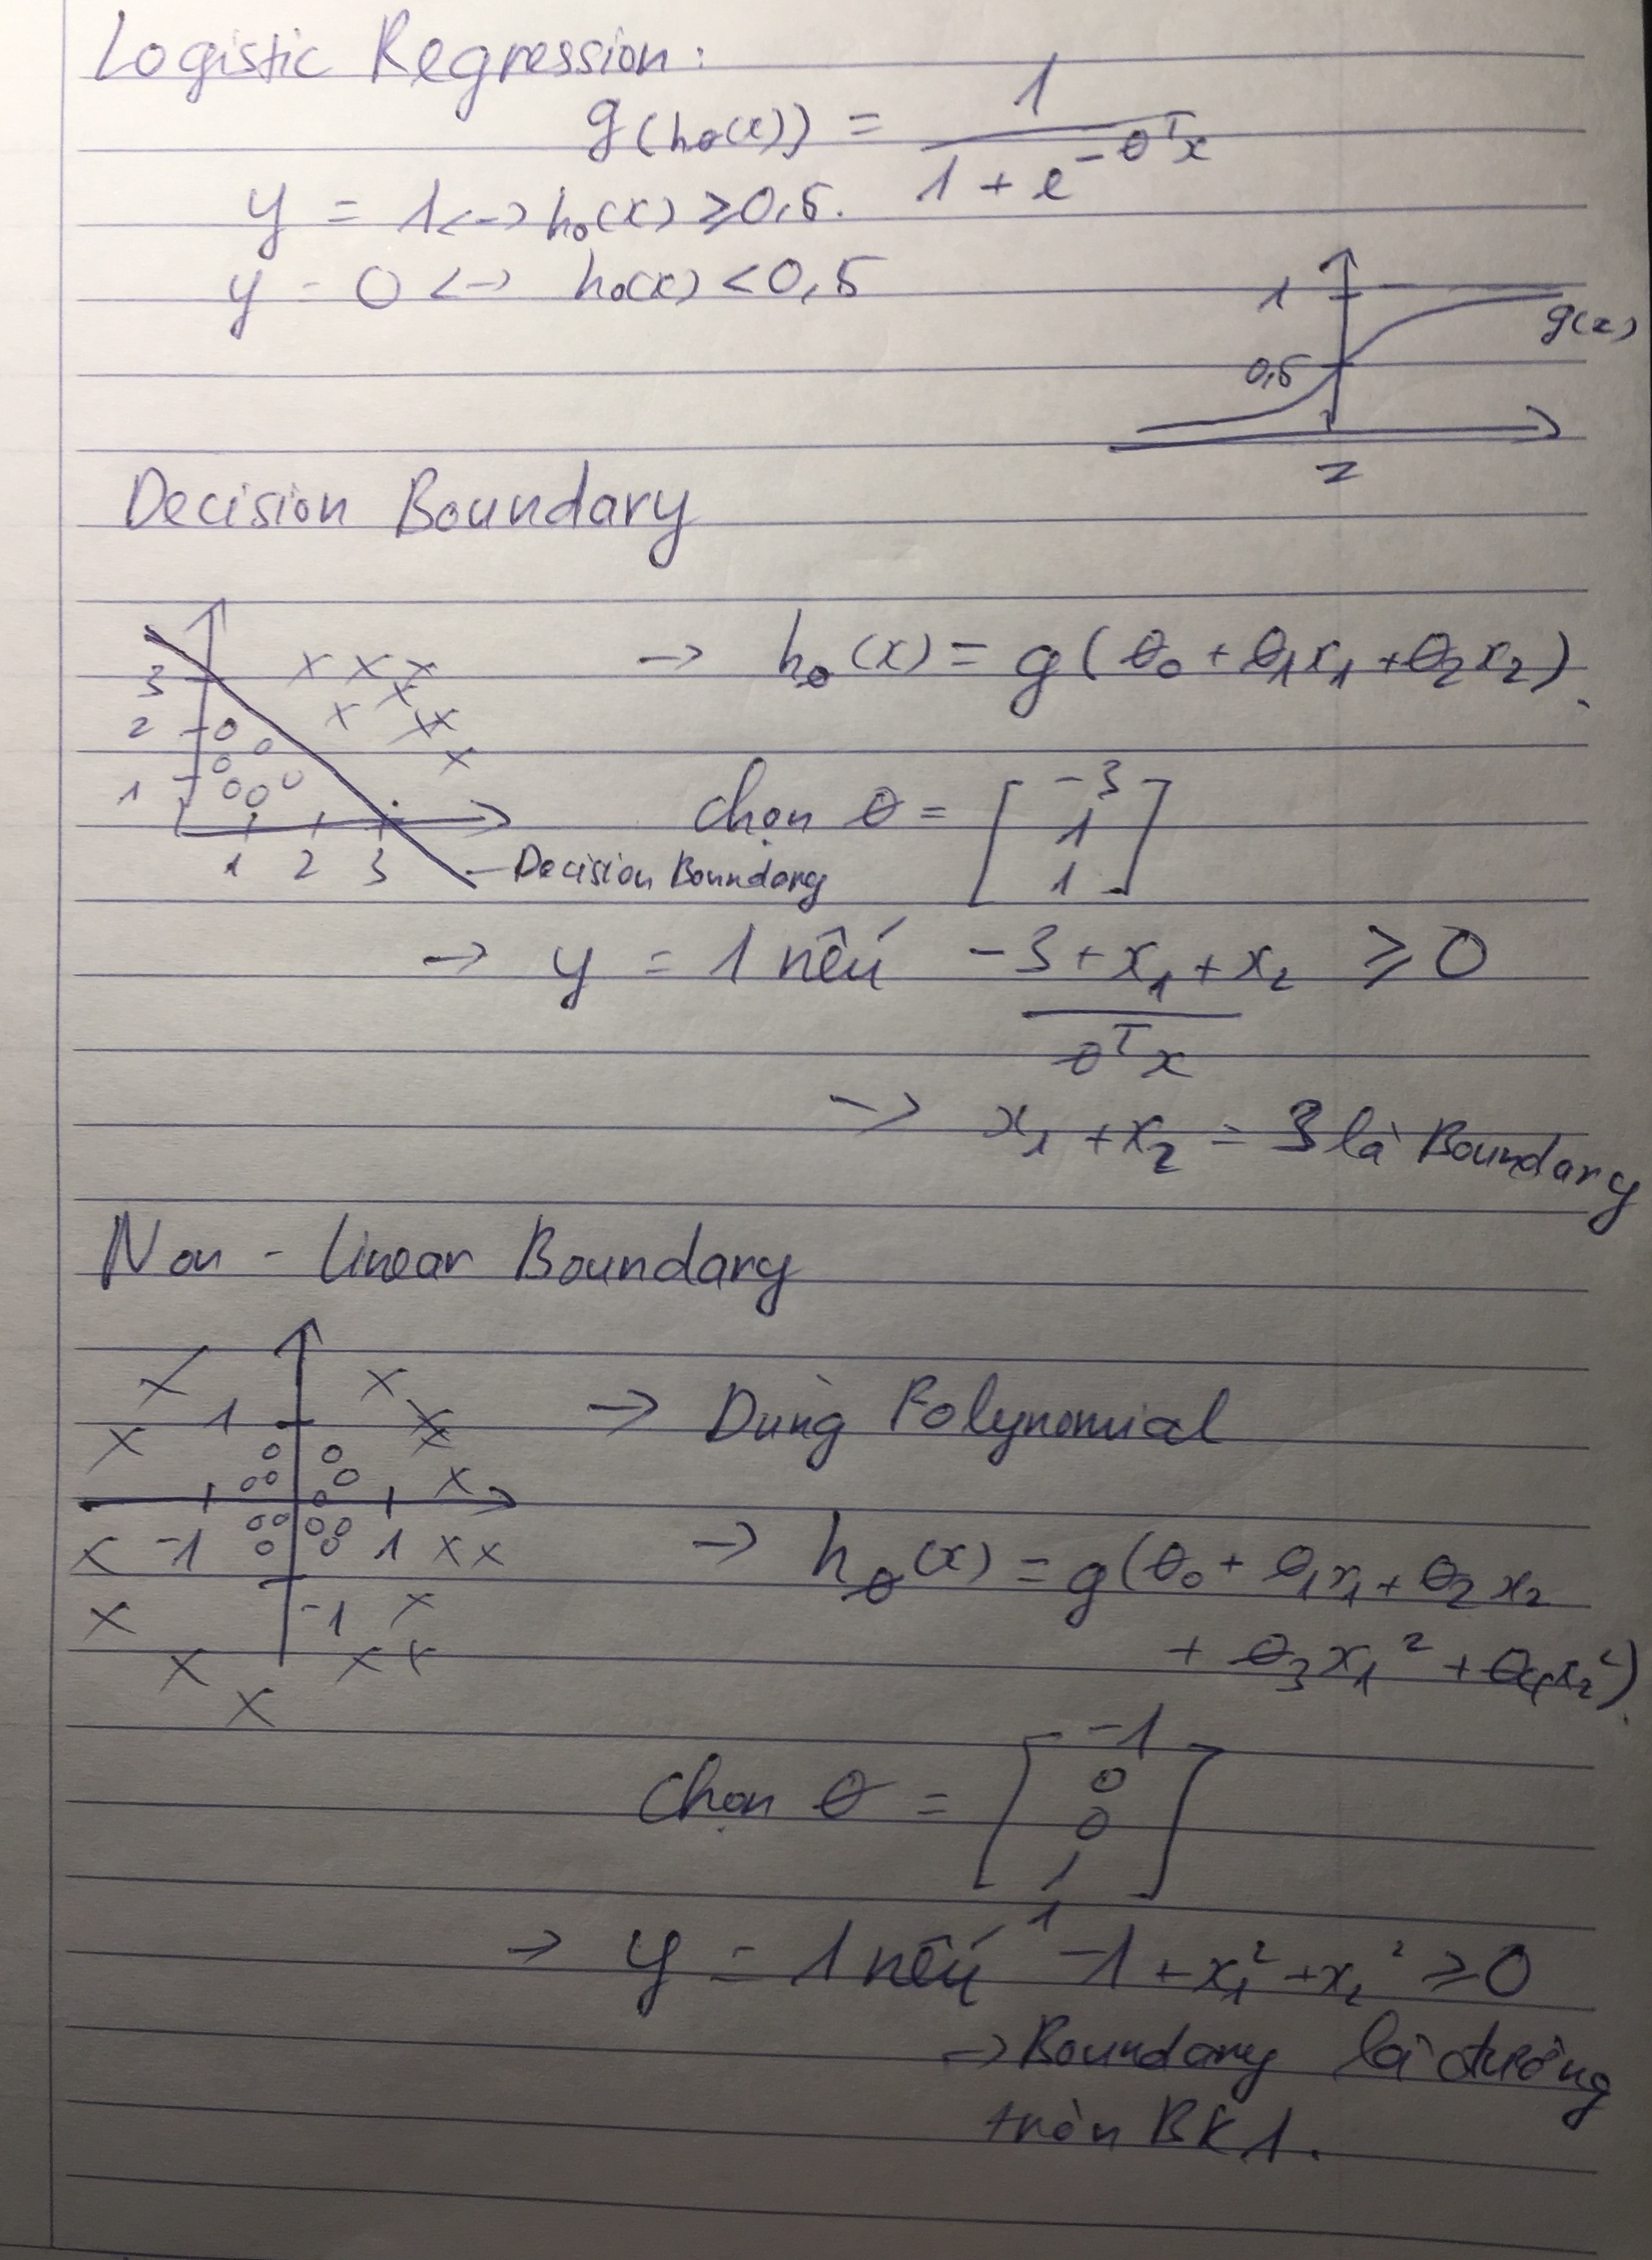 Logistic Regression:
g(hθ(x)) = 1 / (1 + e^(-θ^T x))
y = 1 <-> hθ(x) ≥ 0,5.
y = 0 <-> hθ(x) < 0,5
1
g(z)
0,5
z
Decision Boundary
-> hθ(x) = g(θ₀ + θ₁x₁ + θ₂x₂).
3
2
1
1 2 3
Decision Boundary
chọn θ = [-3 1 1]
-> y = 1 nếu -3 + x₁ + x₂ ≥ 0
θ^T x
-> x₁ + x₂ = 3 là Boundary
Non - linear Boundary
1
-1 1
-1
-> Dùng Polynomial
-> hθ(x) = g(θ₀ + θ₁x₁ + θ₂x₂
+ θ₃x₁² + θ₄x₂²).
chọn θ = [-1 0 0 1 1]
-> y = 1 nếu -1 + x₁² + x₂² ≥ 0
-> Boundary là đường
tròn BK 1.